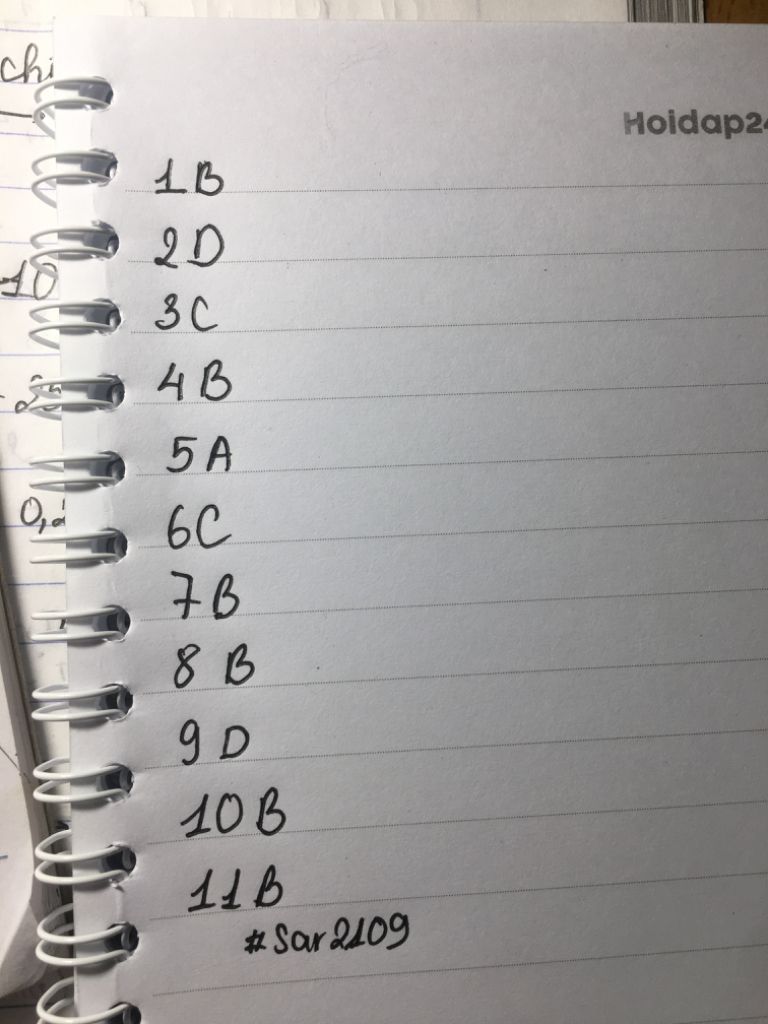 chi
Hoidap24
1B
2D
10
3C
4B
5A
0,2
6C
7B
8 B
9 D
10B
11B
#Sar2109